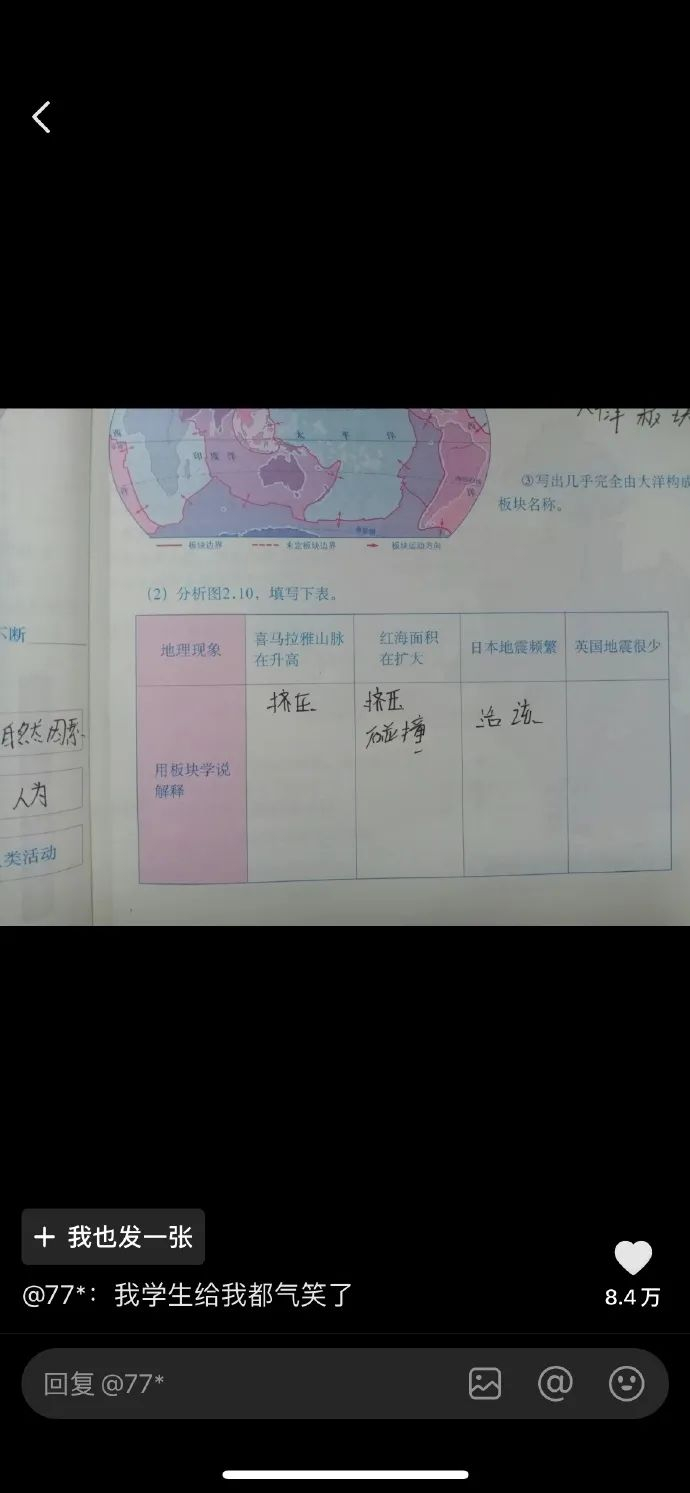 大洋板块
西
太 平 洋
印 度 洋
洋
洋
③写出几乎完全由大洋构成
板块名称。
板块边界
未定板块边界
板块运动方向
(2) 分析图2.10,填写下表。
不断
地理现象
喜马拉雅山脉
在升高
红海面积
在扩大
日本地震频繁
英国地震很少
挤压
挤压
碰撞
活
自然因素
人为
用板块学说
解释
类活动
+ 我也发一张
@77*：我学生给我都气笑了
8.4万
回复 @77*